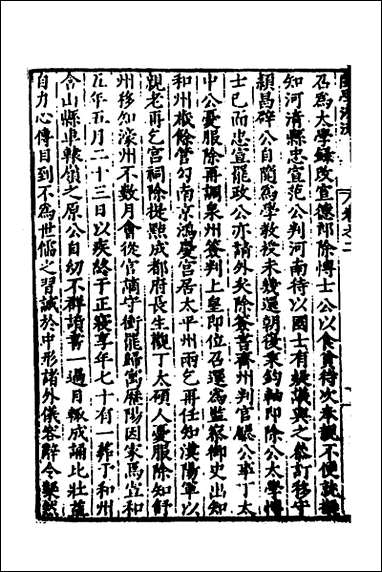 召為太學錄改宣德郎除博士公以食貧待次奉親不便就擬
知河清縣忠宣范公判河南待以國士有疑議與之參訂移守
潁昌辟公自隨為學教授未幾還朝復秉鈞軸即除公太學博
士已而忠宣罷政公亦請外矣除簽書齊州判官廳公事丁太
中公憂服除再調泉州簽判上皇即位召還為監察御史出知
和州歲餘管勾南京鴻慶宮居太平州兩乞再任知漢陽軍以
親老再乞宮祠除提點成都府長生觀丁太碩人憂服除知舒
州移知濠州不數月會從官謫守衝罷歸寓歷陽因家焉宣和
五年五月二十三日以疾終于正寢享年七十有一葬于和州
含山縣車轅嶺之原公自幼不群讀書一過目輒成誦比壯益
自力心傳目到不為世儒之習誠於中形諸外儀容辭令粲然
卷之二